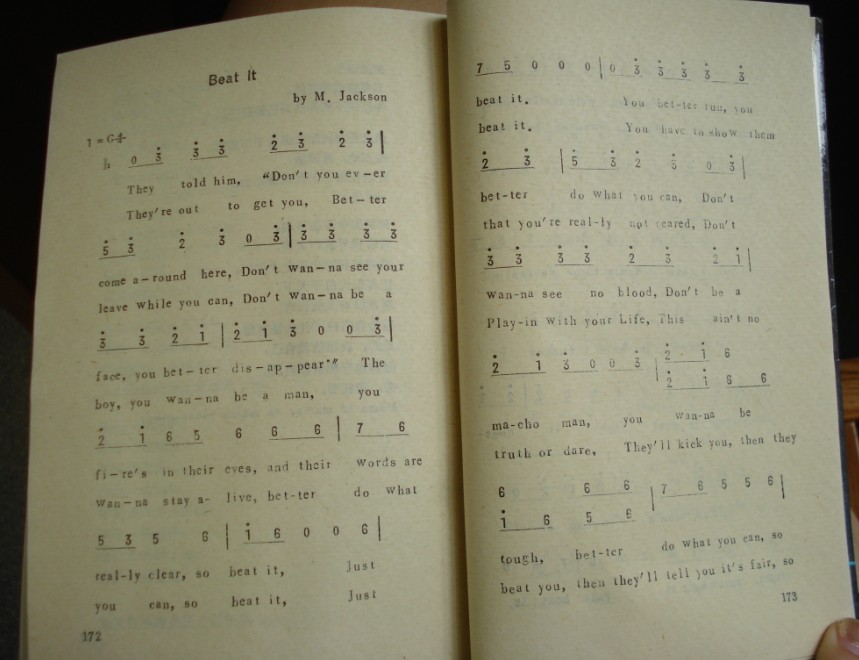 Beat It
by M. Jackson
1 = G 4/4
0 3̇ 3̇ 3̇ 2̇ 3̇ 2̇ 3̇ |
They told him, "Don't you ev-er
They're out to get you, Bet-ter
5̇ 3̇ 2̇ 3̇ 0 3̇ | 3̇ 3̇ 3̇ 3̇
come a-round here, Don't wan-na see your
leave while you can, Don't wan-na be a
3̇ 3̇ 2̇ 1̇ | 2̇ 1̇ 3̇ 0 0 3̇ |
face, you bet-ter dis-ap-pear." The
boy, you wan-na be a man, you
2̇ 1̇ 6 5 6 6 6 | 7 6
fi-re's in their eyes, and their words are
wan-na stay a- live, bet-ter do what
5 3 5 6 | 1̇ 6 0 0 6 |
real-ly clear, so beat it, Just
you can, so beat it, Just
172
7 5 0 0 0 | 0 3̇ 3̇ 3̇ 3̇ 3̇
beat it. You bet-ter run, you
beat it. You have to show them
2̇ 3̇ | 5̇ 3̇ 2̇ 3̇ 0 3̇ |
bet-ter do what you can, Don't
that you're real-ly not scared, Don't
3̇ 3̇ 3̇ 3̇ 2̇ 3̇ 2̇ 1̇ |
wan-na see no blood, Don't be a
Play-in with your Life, This ain't no
2̇ 1̇ 3̇ 0 0 3̇ | 2̇ 1̇ 6
2̇ 1̇ 6 6
ma-cho man, you wan-na be
truth or dare, They'll kick you, then they
6 6 6 | 7 6 5 5 6 |
1̇ 6 5 6
tough, bet-ter do what you can, so
beat you, then they'll tell you it's fair, so
173